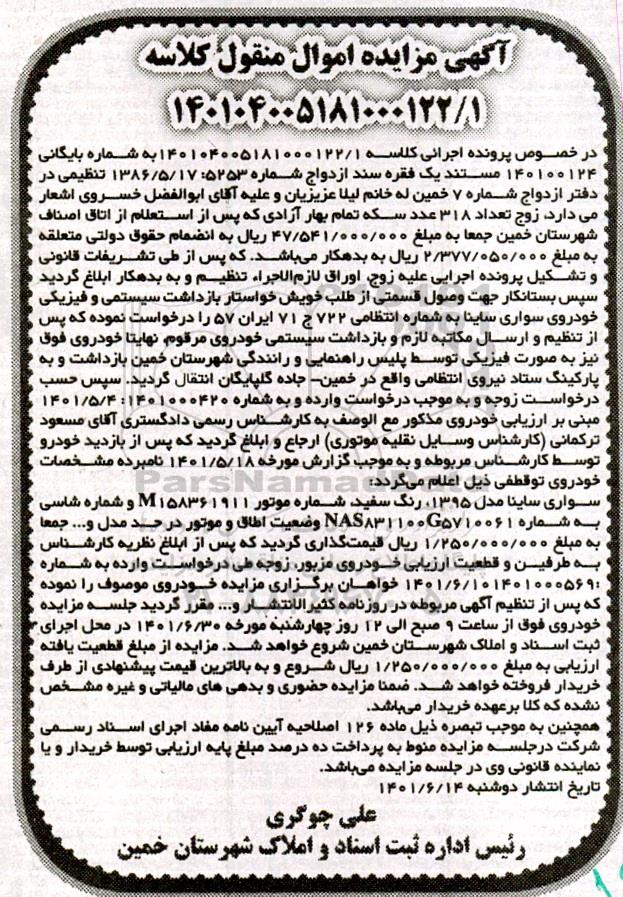 آگهی مزایده اموال منقول کلاسه
۱۴۰۱۰۴۰۰۵۱۸۱۰۰۰۱۲۲/۱
در خصوص پرونده اجرائی کلاسه ۱۴۰۱۰۴۰۰۵۱۸۱۰۰۰۱۲۲/۱به شماره بایگانی
۱۴۰۱۰۰۱۲۴ مستند یک فقره سند ازدواج شماره ۵۲۵۳: ۱۳۸۶/۵/۱۷ تنظیمی در
دفتر ازدواج شماره ۷ خمین له خانم لیلا عزیزیان و علیه آقای ابوالفضل خسروی اشعار
می دارد، زوج تعداد ۳۱۸ عدد سکه تمام بهار آزادی که پس از استعلام از اتاق اصناف
شهرستان خمین جمعا به مبلغ ۴۷/۵۴۱/۰۰۰/۰۰۰ ریال به انضمام حقوق دولتی متعلقه
به مبلغ ۲/۳۷۷/۰۵۰/۰۰۰ ریال به بدهکار می‌باشد. که پس از طی تشریفات قانونی
و تشکیل پرونده اجرایی علیه زوج، اوراق لازم‌الاجراء تنظیم و به بدهکار ابلاغ گردید
سپس بستانکار جهت وصول قسمتی از طلب خویش خواستار بازداشت سیستمی و فیزیکی
خودروی سواری ساینا به شماره انتظامی ۷۲۲ ج ۷۱ ایران ۵۷ را درخواست نموده که پس
از تنظیم و ارسال مکاتبه لازم و بازداشت سیستمی خودروی مرقوم، نهایتا خودروی فوق
نیز به صورت فیزیکی توسط پلیس راهنمایی و رانندگی شهرستان خمین بازداشت و به
پارکینگ ستاد نیروی انتظامی واقع در خمین– جاده گلپایگان انتقال گردید. سپس حسب
درخواست زوجه و به موجب درخواست وارده و به شماره ۱۴۰۱۰۰۰۴۲۰: ۱۴۰۱/۵/۴
مبنی بر ارزیابی خودروی مذکور مع الوصف به کارشناس رسمی دادگستری آقای مسعود
ترکمانی (کارشناس وسایل نقلیه موتوری) ارجاع و ابلاغ گردید که پس از بازدید خودرو
توسط کارشناس مربوطه و به موجب گزارش مورخه ۱۴۰۱/۵/۱۸ نامبرده مشخصات
خودروی توقطفی ذیل اعلام می‌گردد:
سواری ساینا مدل ۱۳۹۵، رنگ سفید، شماره موتور M۱۵۸۳۶۱۹۱۱ و شماره شاسی
به شماره NAS۸۳۱۱۰۰G۵۷۱۰۰۶۱ وضعیت اطاق و موتور در حد مدل و... جمعا
به مبلغ ۱/۲۵۰/۰۰۰/۰۰۰ ریال قیمت‌گذاری گردید که پس از ابلاغ نظریه کارشناس
به طرفین و قطعیت ارزیابی خودروی مزبور، زوجه طی درخواست وارده به شماره
۱۴۰۱/۶/۱۰۱۴۰۱۰۰۰۵۶۹: خواهان برگزاری مزایده خودروی موصوف را نموده
که پس از تنظیم آگهی مربوطه در روزنامه کثیرالانتشار و... مقرر گردید جلسه مزایده
خودروی فوق از ساعت ۹ صبح الی ۱۲ روز چهارشنبه مورخه ۱۴۰۱/۶/۳۰ در محل اجرای
ثبت اسناد و املاک شهرستان خمین شروع خواهد شد. مزایده از مبلغ قطعیت یافته
ارزیابی به مبلغ ۱/۲۵۰/۰۰۰/۰۰۰ ریال شروع و به بالاترین قیمت پیشنهادی از طرف
خریدار فروخته خواهد شد. ضمنا مزایده حضوری و بدهی های مالیاتی و غیره مشخص
نشده که کلا برعهده خریدار می‌باشد.
همچنین به موجب تبصره ذیل ماده ۱۲۶ اصلاحیه آیین نامه مفاد اجرای اسناد رسمی
شرکت درجلسه مزایده منوط به پرداخت ده درصد مبلغ پایه ارزیابی توسط خریدار و یا
نماینده قانونی وی در جلسه مزایده می‌باشد.
تاریخ انتشار دوشنبه ۱۴۰۱/۶/۱۴
علی چوگری
رئیس اداره ثبت اسناد و املاک شهرستان خمین
ParsNamadData